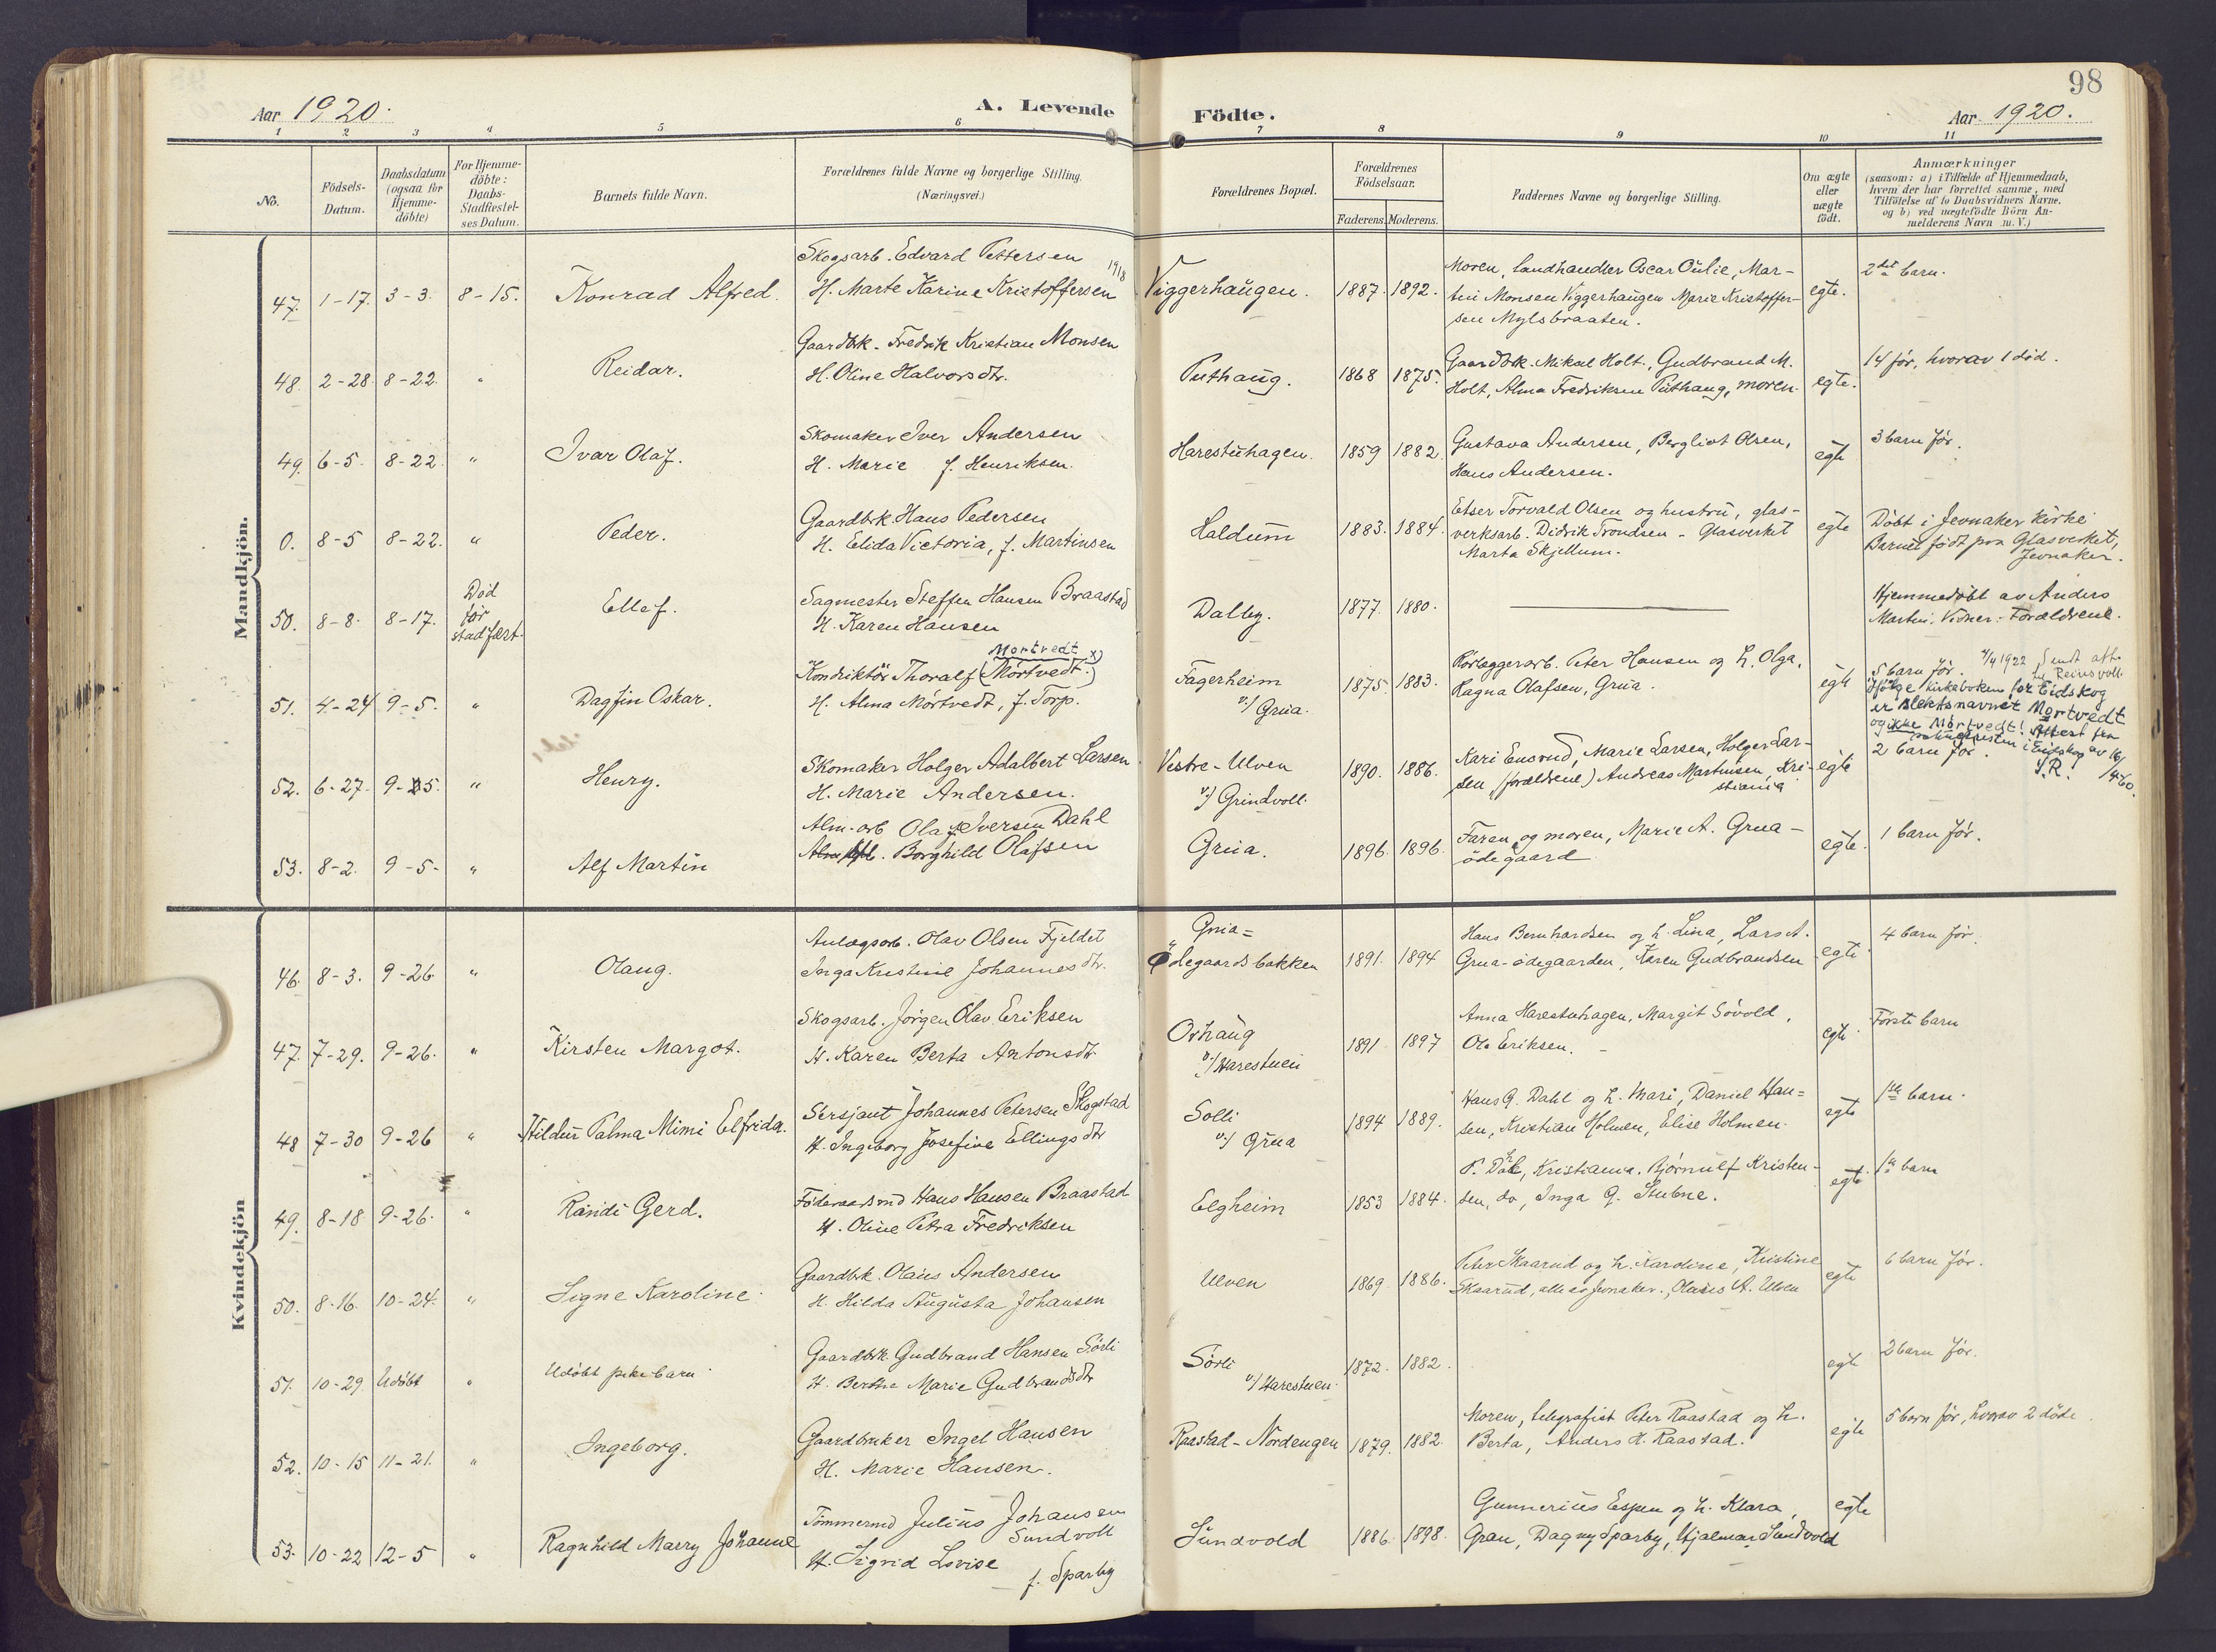 98
Aar 1920.
A. Levende
Födte.
Aar 1920.
1 2 3 4 5 6 7 8 9 10 11
No.
Födsels-
Datum.
Daabsdatum
(ogsaa for
Hjemme-
döbte)
For Hjemme-
döbte:
Daabs-
Stadfæstel-
ses Datum.
Barnets fulde Navn.
Forældrenes fulde Navne og borgerlige Stilling.
(Næringsvei.)
Forældrenes Bopæl.
Forældrenes
Födselsaar.
Faderens. Moderens.
Faddernes Navne og borgerlige Stilling.
Om ægte
eller
uægte
födt.
Anmærkninger
(saasom: a) i Tilfælde af Hjemmedaab,
hvem der har forrettet samme, med
Tilföielse af to Daabsvidners Navne.
og b) ved uægtefödte Börn An-
melderens Navn m. V.)
Mandkjön.
47. 1-17. 3-3. 8-15. Konrad Alfred.
Skogsarb. Edvard Pettersen
H. Marte Karine Kristoffersen 1918
Viggerhaugen. 1887. 1892.
Moren, Landhandler Oscar Oulie, Mar-
tin Monsen Viggerhaugen Marie Kristoffer-
sen Mylsbraaten.
egte.
2det barn.
48. 2-28. 8-22. " Reidar.
Gaardbrk. Fredrik Kristian Monsen
H. Oline Halvorsdtr.
Puthaug. 1868 1875.
Gaardbrk. Mikael Holt, Gudbrand M.
Holt, Alma Fredriksen Puthaug, moren.
egte.
14 før, hvorav 1 død.
49. 6-5. 8-22. " Ivar Olaf.
Skomaker Iver Andersen
H. Marie f. Henriksen.
Harestuhagen. 1859 1882.
Gustava Andersen, Bergliot Olsen,
Hans Andersen.
egte
3 barn før.
0. 8-5 8-22. " Peder.
Gaardbrk. Hans Pedersen
H. Elida Victoria, f. Martinsen
Haldum 1883. 1884.
Etser Torvald Olsen og hustru, glas-
verksarb. Didrik Trondsen - Glasverket
Marta Skjellum.
egte
Döbt i Jevnaker Kirke
Barnet födt paa Glasverket,
Jevnaker.
50. 8-8. 8-17.
Død
før
stadfæst.
Ellef.
Sagmester Steffen Hansen Braastad
H. Karen Hansen
Dalby. 1877. 1880.
Hjemmedöbt av Anders
Martin. Vidner: Forældrene.
51. 4-24 9-5. " Dagfin Oskar.
Mortvedt x)
Konduktör Thoralf (Mörtvedt.)
H. Alma Mörtvedt, f. Torp.
Fagerheim
v/ Grua.
1875 1883.
Rörlæggerarb. Peter Hansen og h. Olga,
Ragna Olafsen, Grua.
egte
5 barn før. 4/4 1922 Sendt att.
Reinsvoll
Ifölge kirkeboken for Eidskog
er slektsnavnet Mortvedt
og ikke Mörtvedt! Attest fra
soknepresten i Eidskog av 16/
4-60.
S.R.
52. 6-27. 9-5. " Henry.
Skomaker Holger Adalbert Larsen
H. Marie Andersen.
Vestre-Ulven
v/ Grindvoll.
1890. 1886.
Kari Ensrud, Marie Larsen, Holger Lar-
sen, (forældrene) Andreas Martinsen, Kri-
stiania
egte
2 barn før.
53. 8-2. 9-5- " Alf Martin
Alm.-arb Olaf Iversen Dahl
Borghild Olafsen
Grua. 1896. 1896.
Faren og moren, Marie A. Grua-
ödegaard
egte.
1 barn før.
Kvindekjön
46. 8-3. 9-26. " Olaug.
Anlægsarb. Olav Olsen Fjeldet
Inga Kristine Johannesdtr.
Grua=
Ödegaardsbakken 1891. 1894
Hans Bernhardsen og h. Lina, Lars A.
Grua-ödegaarden, Karen Gudbrandsen
egte
4 barn før.
47. 7-29. 9-26. " Kirsten Margot.
Skogsarb. Jörgen Olav Eriksen
H. Karen Berta Antonsdtr
Orhaug
v/ Harestuen
1891 1897
Anna Harestuhagen, Margit Sövold,
Ole Eriksen.
egte.
Förste barn
48 7-30 9-26 " Hildur Palma Mimi Elfrida.
Sersjant Johannes Petersen Skogstad
H. Ingeborg Josefine Ellingsdtr
Solli
v/ Grua
1894 1889.
Hans G. Dahl og h. Mari, Daniel Han=
sen, Kristian Holmen, Elise Holmen.
egte
1ste barn.
49. 8-18 9-26. " Randi Gerd.
Föderaadsmd Hans Hansen Braastad
H. Oline Petra Fredriksen
Elgheim 1853 1884.
P. Dahl, Kristiania. Björnulf Kristen-
sen, do, Inga G. Stubne.
egte
1ste barn
50. 8-16. 10-24. " Signe Karoline.
Gaardbrk. Olaus Andersen
H. Hilda Augusta Johansen
Ulven 1869. 1886.
Peter Skaarud og h. Karoline, Kristine
Skaarud, alle av Jevnaker., Olaus A. Ulven
egte
6 barn før.
51. 10-29. Udöbt " Udöbt pikebarn.
Gaardbrk. Gudbrand Hansen Sörli
H. Berthe Marie Gudbrandsdtr
Sörli
v/ Harestuen.
1872. 1882.
egte
2 barn før.
52. 10-15 11-21. " Ingeborg.
Gaardbruker Ingel Hansen
H. Marie Hansen.
Raastad-Nordengen 1879. 1882.
Moren, telegrafist Peter Raastad og h.
Berta, Anders H. Raastad.
egte
5 barn før, hvorav 2 döde.
53. 10-22 12-5 " Ragnhild Maery Johanne
Tömmermd Julius Johansen
Sundvoll
H. Sigrid Lovise
f. Sparby
Sundvold 1886. 1898.
Gunnerius Espen og h. Klara,
Gran, Dagny Sparby, Hjalmar Sundvold
egte